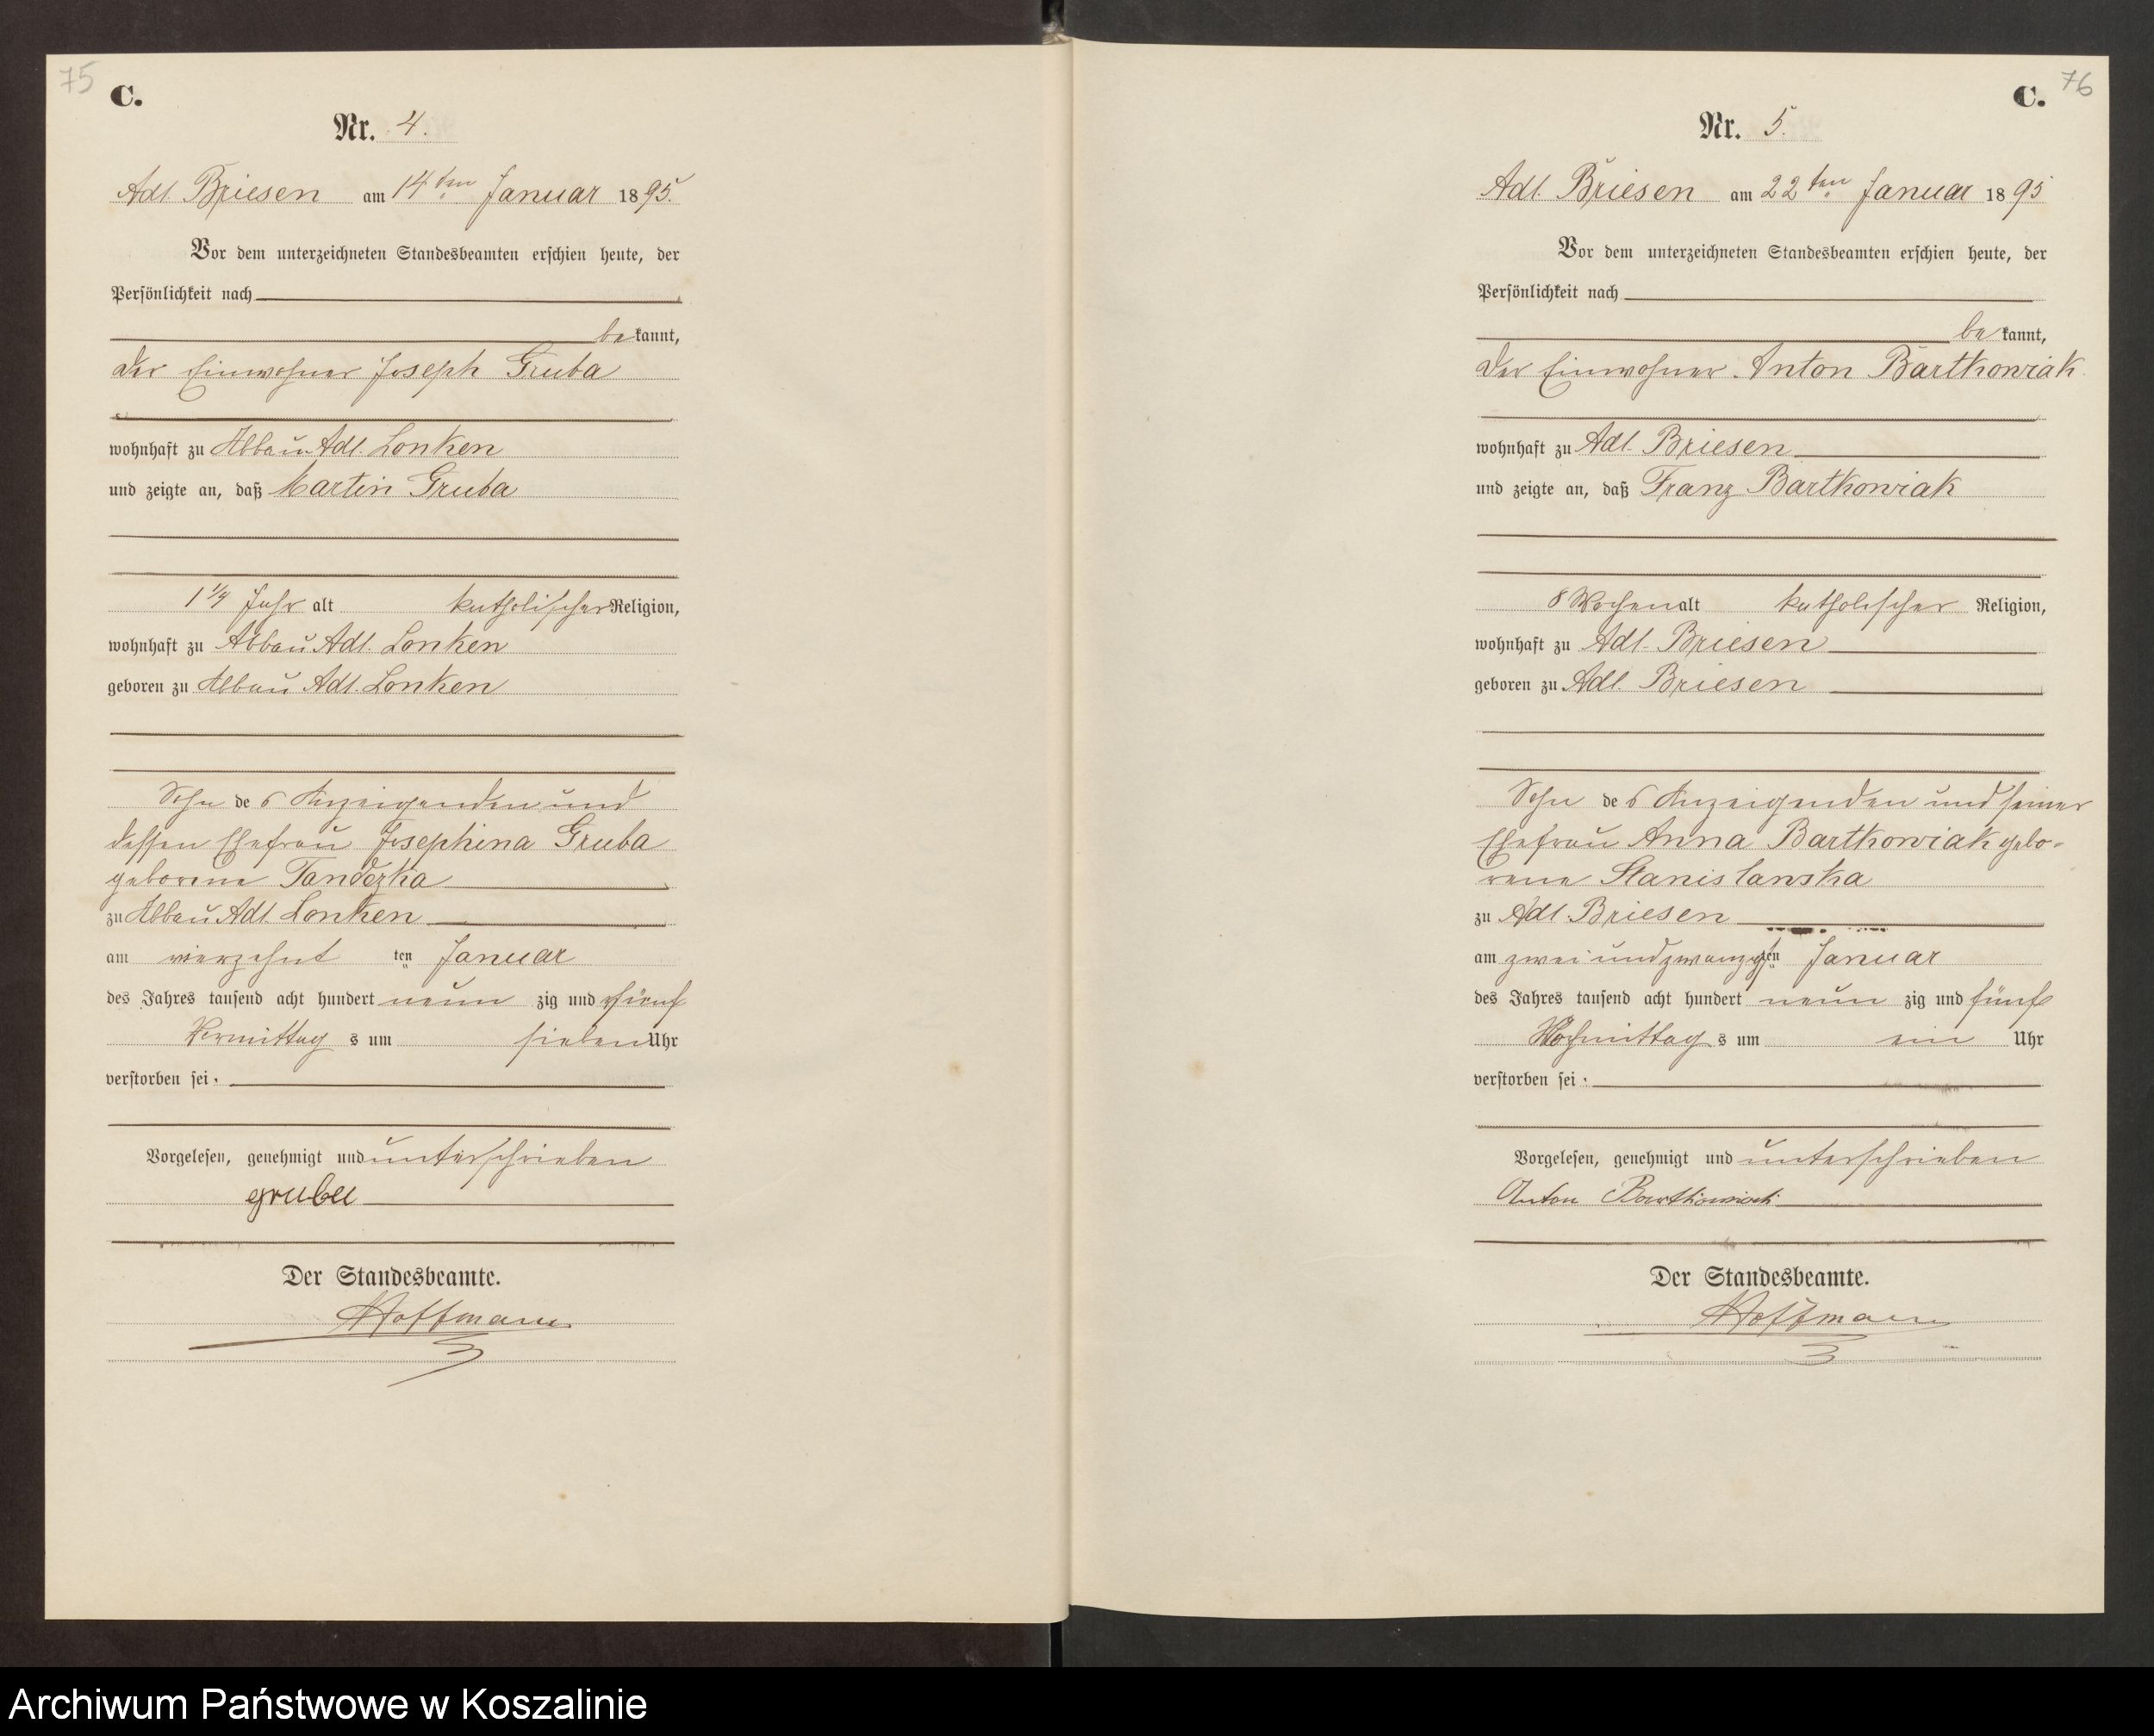 75
C.
Nr. 4.
Adl. Briesen am 14ten Januar 1895.
Vor dem unterzeichneten Standesbeamten erschien heute, der
Persönlichkeit nach
bekannt,
der Einwohner Joseph Gruba
wohnhaft zu Abbau Adl. Lonken
und zeigte an, daß Martin Gruba
1 1/4 Jahr alt katholischer Religion,
wohnhaft zu Abbau Adl. Lonken
geboren zu Abbau Adl. Lonken
Sohn des Anzeigenden und
dessen Ehefrau Josephina Gruba
geborene Tandezka
zu Abbau Adl. Lonken
am vierzehnt ten Januar
des Jahres tausend acht hundert neun zig und fünf
Vormittag s um sieben Uhr
verstorben sei.
Vorgelesen, genehmigt und unterschrieben
gruba
Der Standesbeamte.
Hoffmann
76
C.
Nr. 5.
Adl. Briesen am 22ten Januar 1895
Vor dem unterzeichneten Standesbeamten erschien heute, der
Persönlichkeit nach
bekannt,
der Einwohner Anton Bartkowiak
wohnhaft zu Adl. Briesen
und zeigte an, daß Franz Bartkowiak
8 Wochen alt katholischer Religion,
wohnhaft zu Adl. Briesen
geboren zu Adl. Briesen
Sohn des Anzeigenden und seiner
Ehefrau Anna Bartkowiak gebo-
rene Stanislawska
zu Adl. Briesen
am zwei und zwanzigsten Januar
des Jahres tausend acht hundert neun zig und fünf
Nachmittag s um ein Uhr
verstorben sei.
Vorgelesen, genehmigt und unterschrieben
Anton Bartkowiak
Der Standesbeamte.
Hoffmann
Archiwum Państwowe w Koszalinie